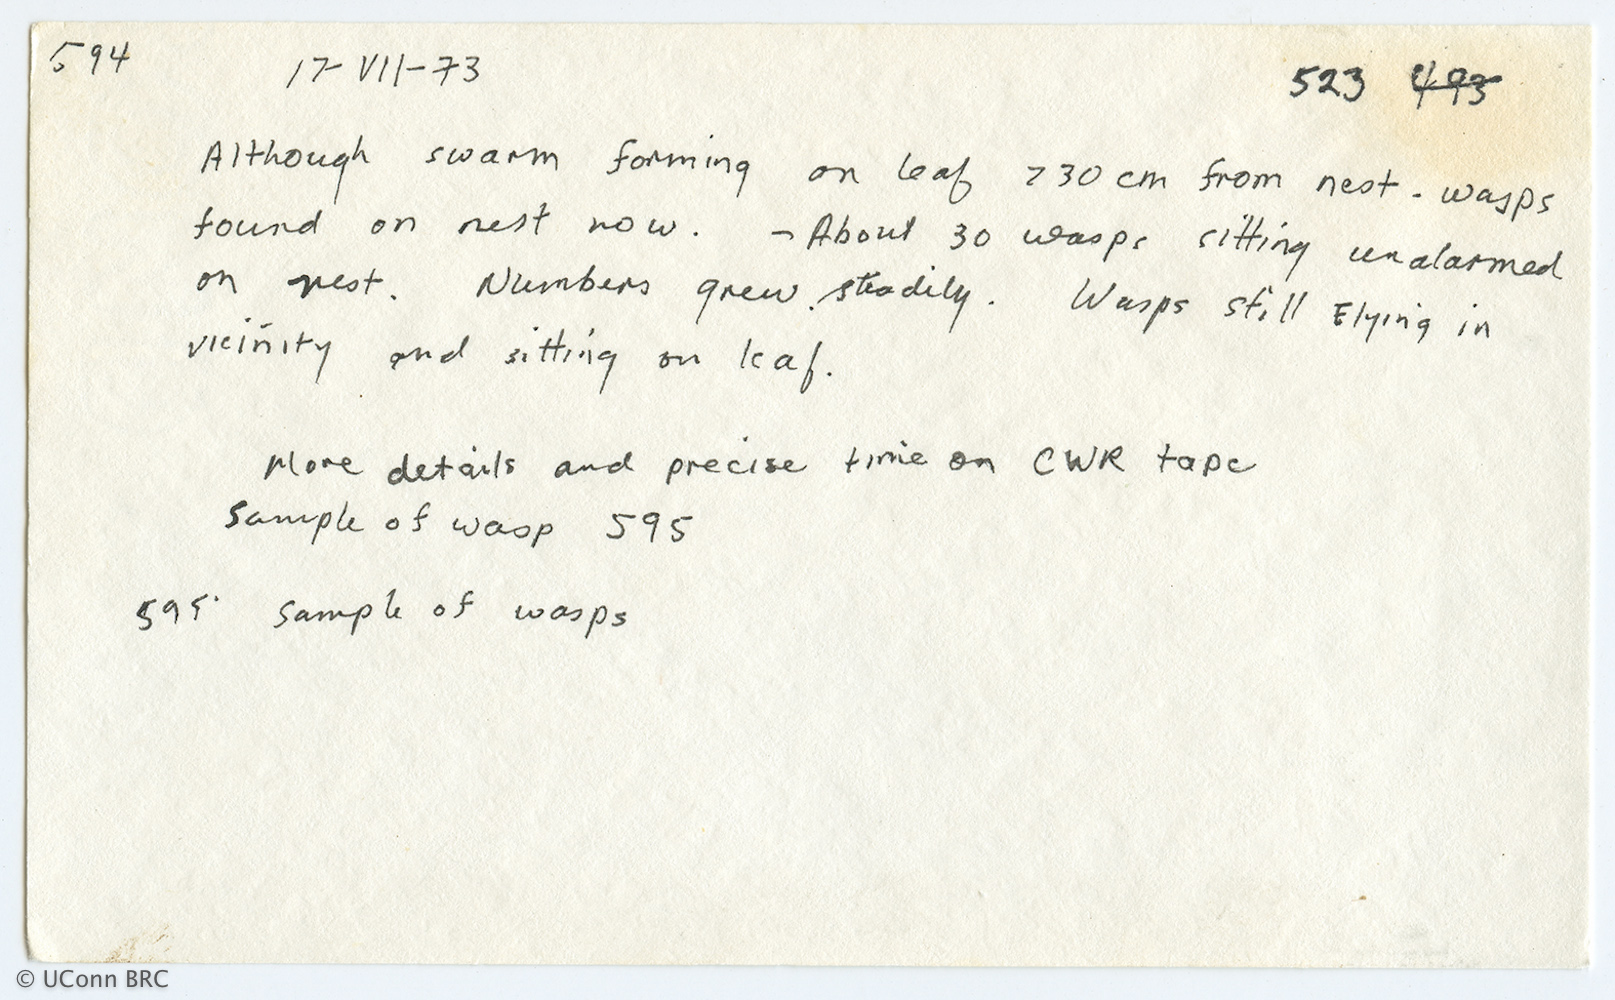 594 17-VII-73 523 493
Although swarm forming on leaf >30 cm from nest - wasps
found on nest now. - About 30 wasps sitting unalarmed
on nest. Numbers grew steadily. Wasps still Flying in
vicinity and sitting on leaf.
More details and precise time on CWR tape
Sample of wasp 595
595 Sample of wasps
© UConn BRC